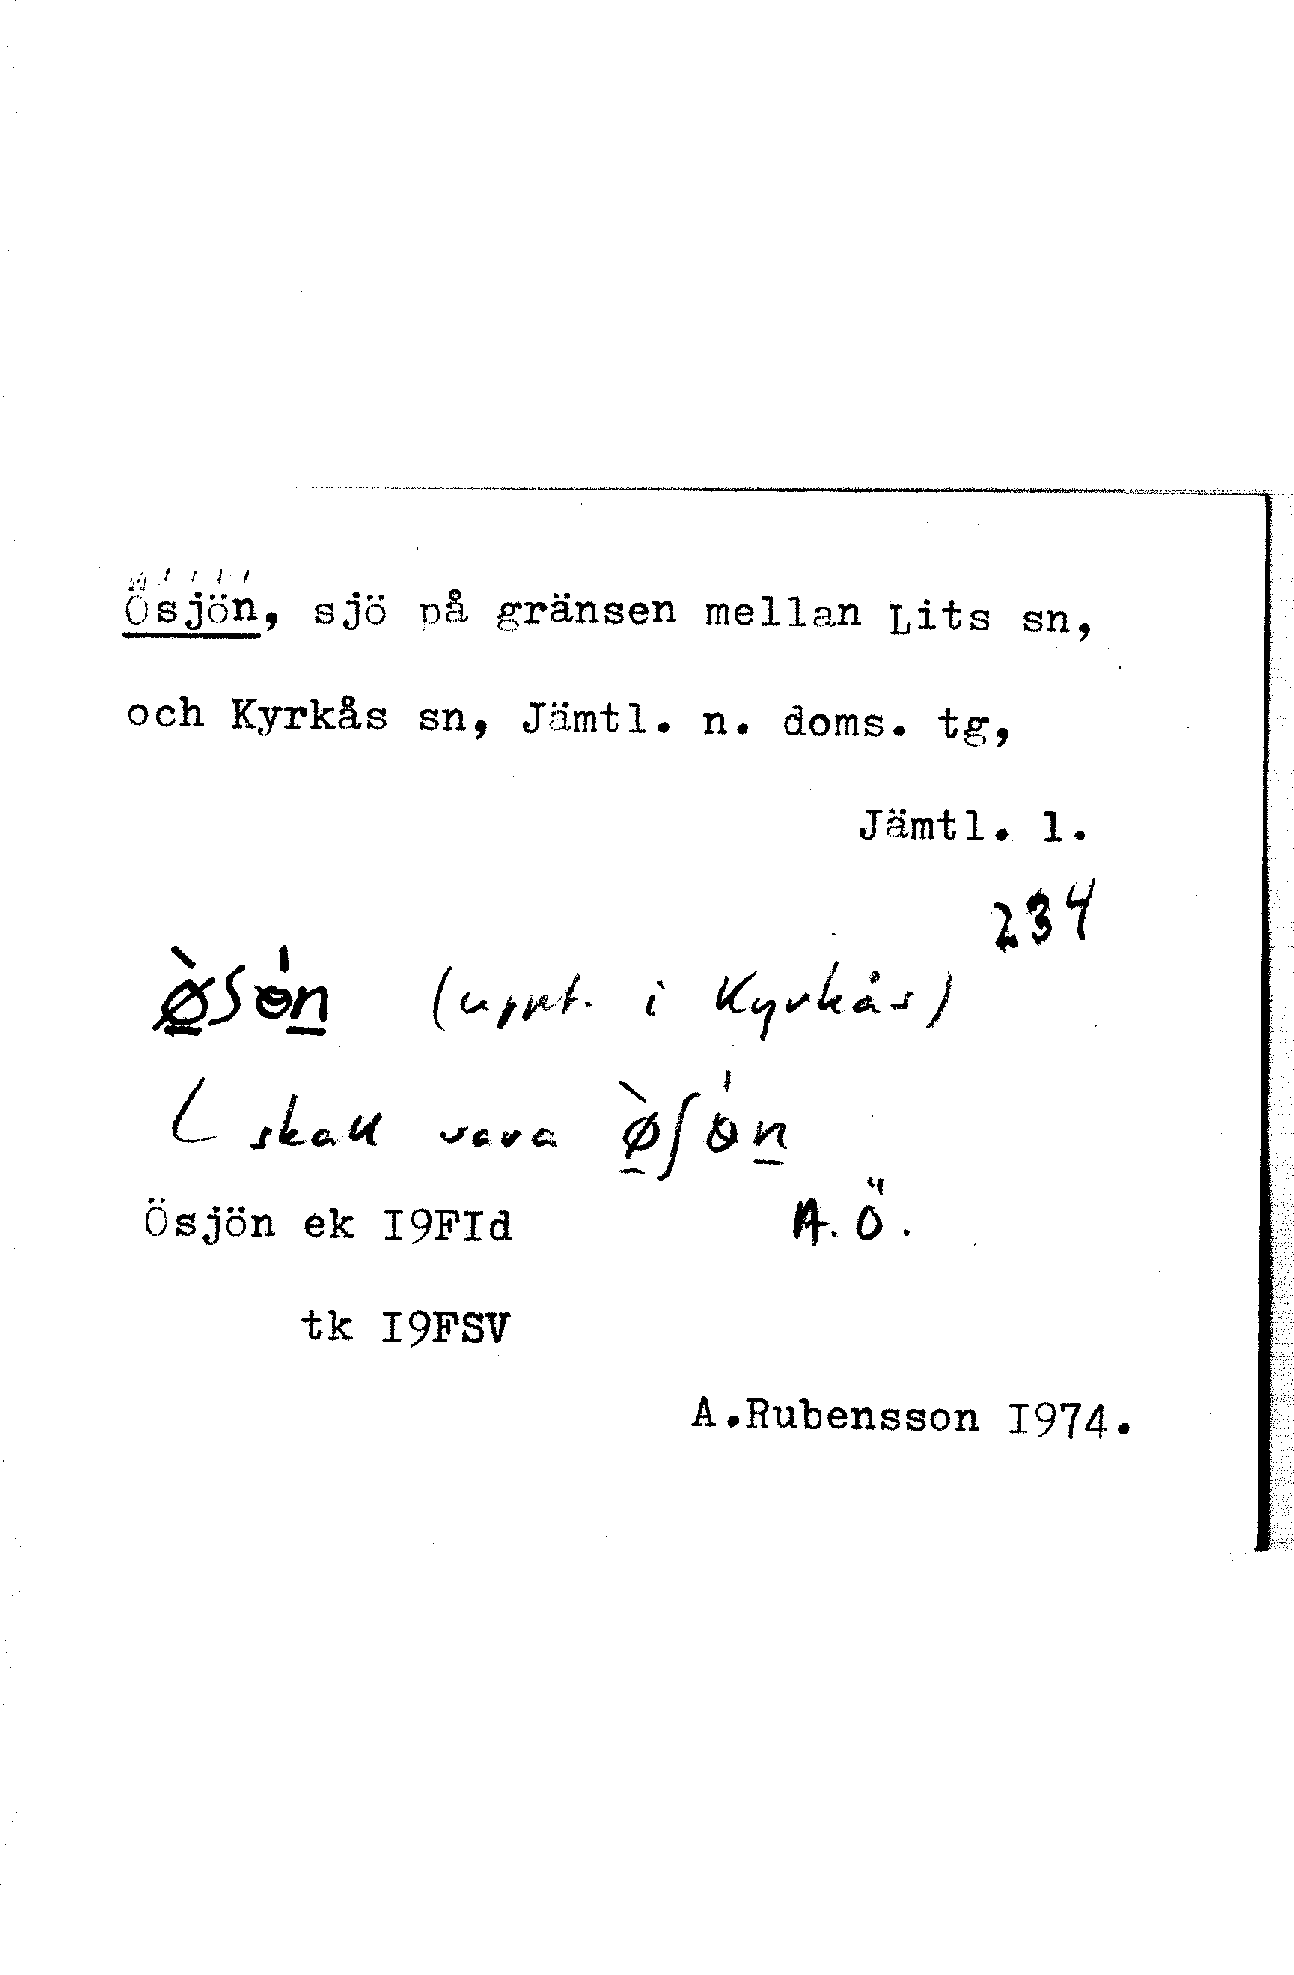 Ösjön, sjö på gränsen mellan Lits sn,
och Kyrkås sn, Jämtl. n. doms. tg,
Jämtl. l.
234
ø̲̀sɵ́n̲ (uppt. i Kyrkås)
( skall vara ø̲̀ʃɵ́n̲
Ösjön ek I9FId A.Ö.
tk I9FSV
A.Rubensson I974.